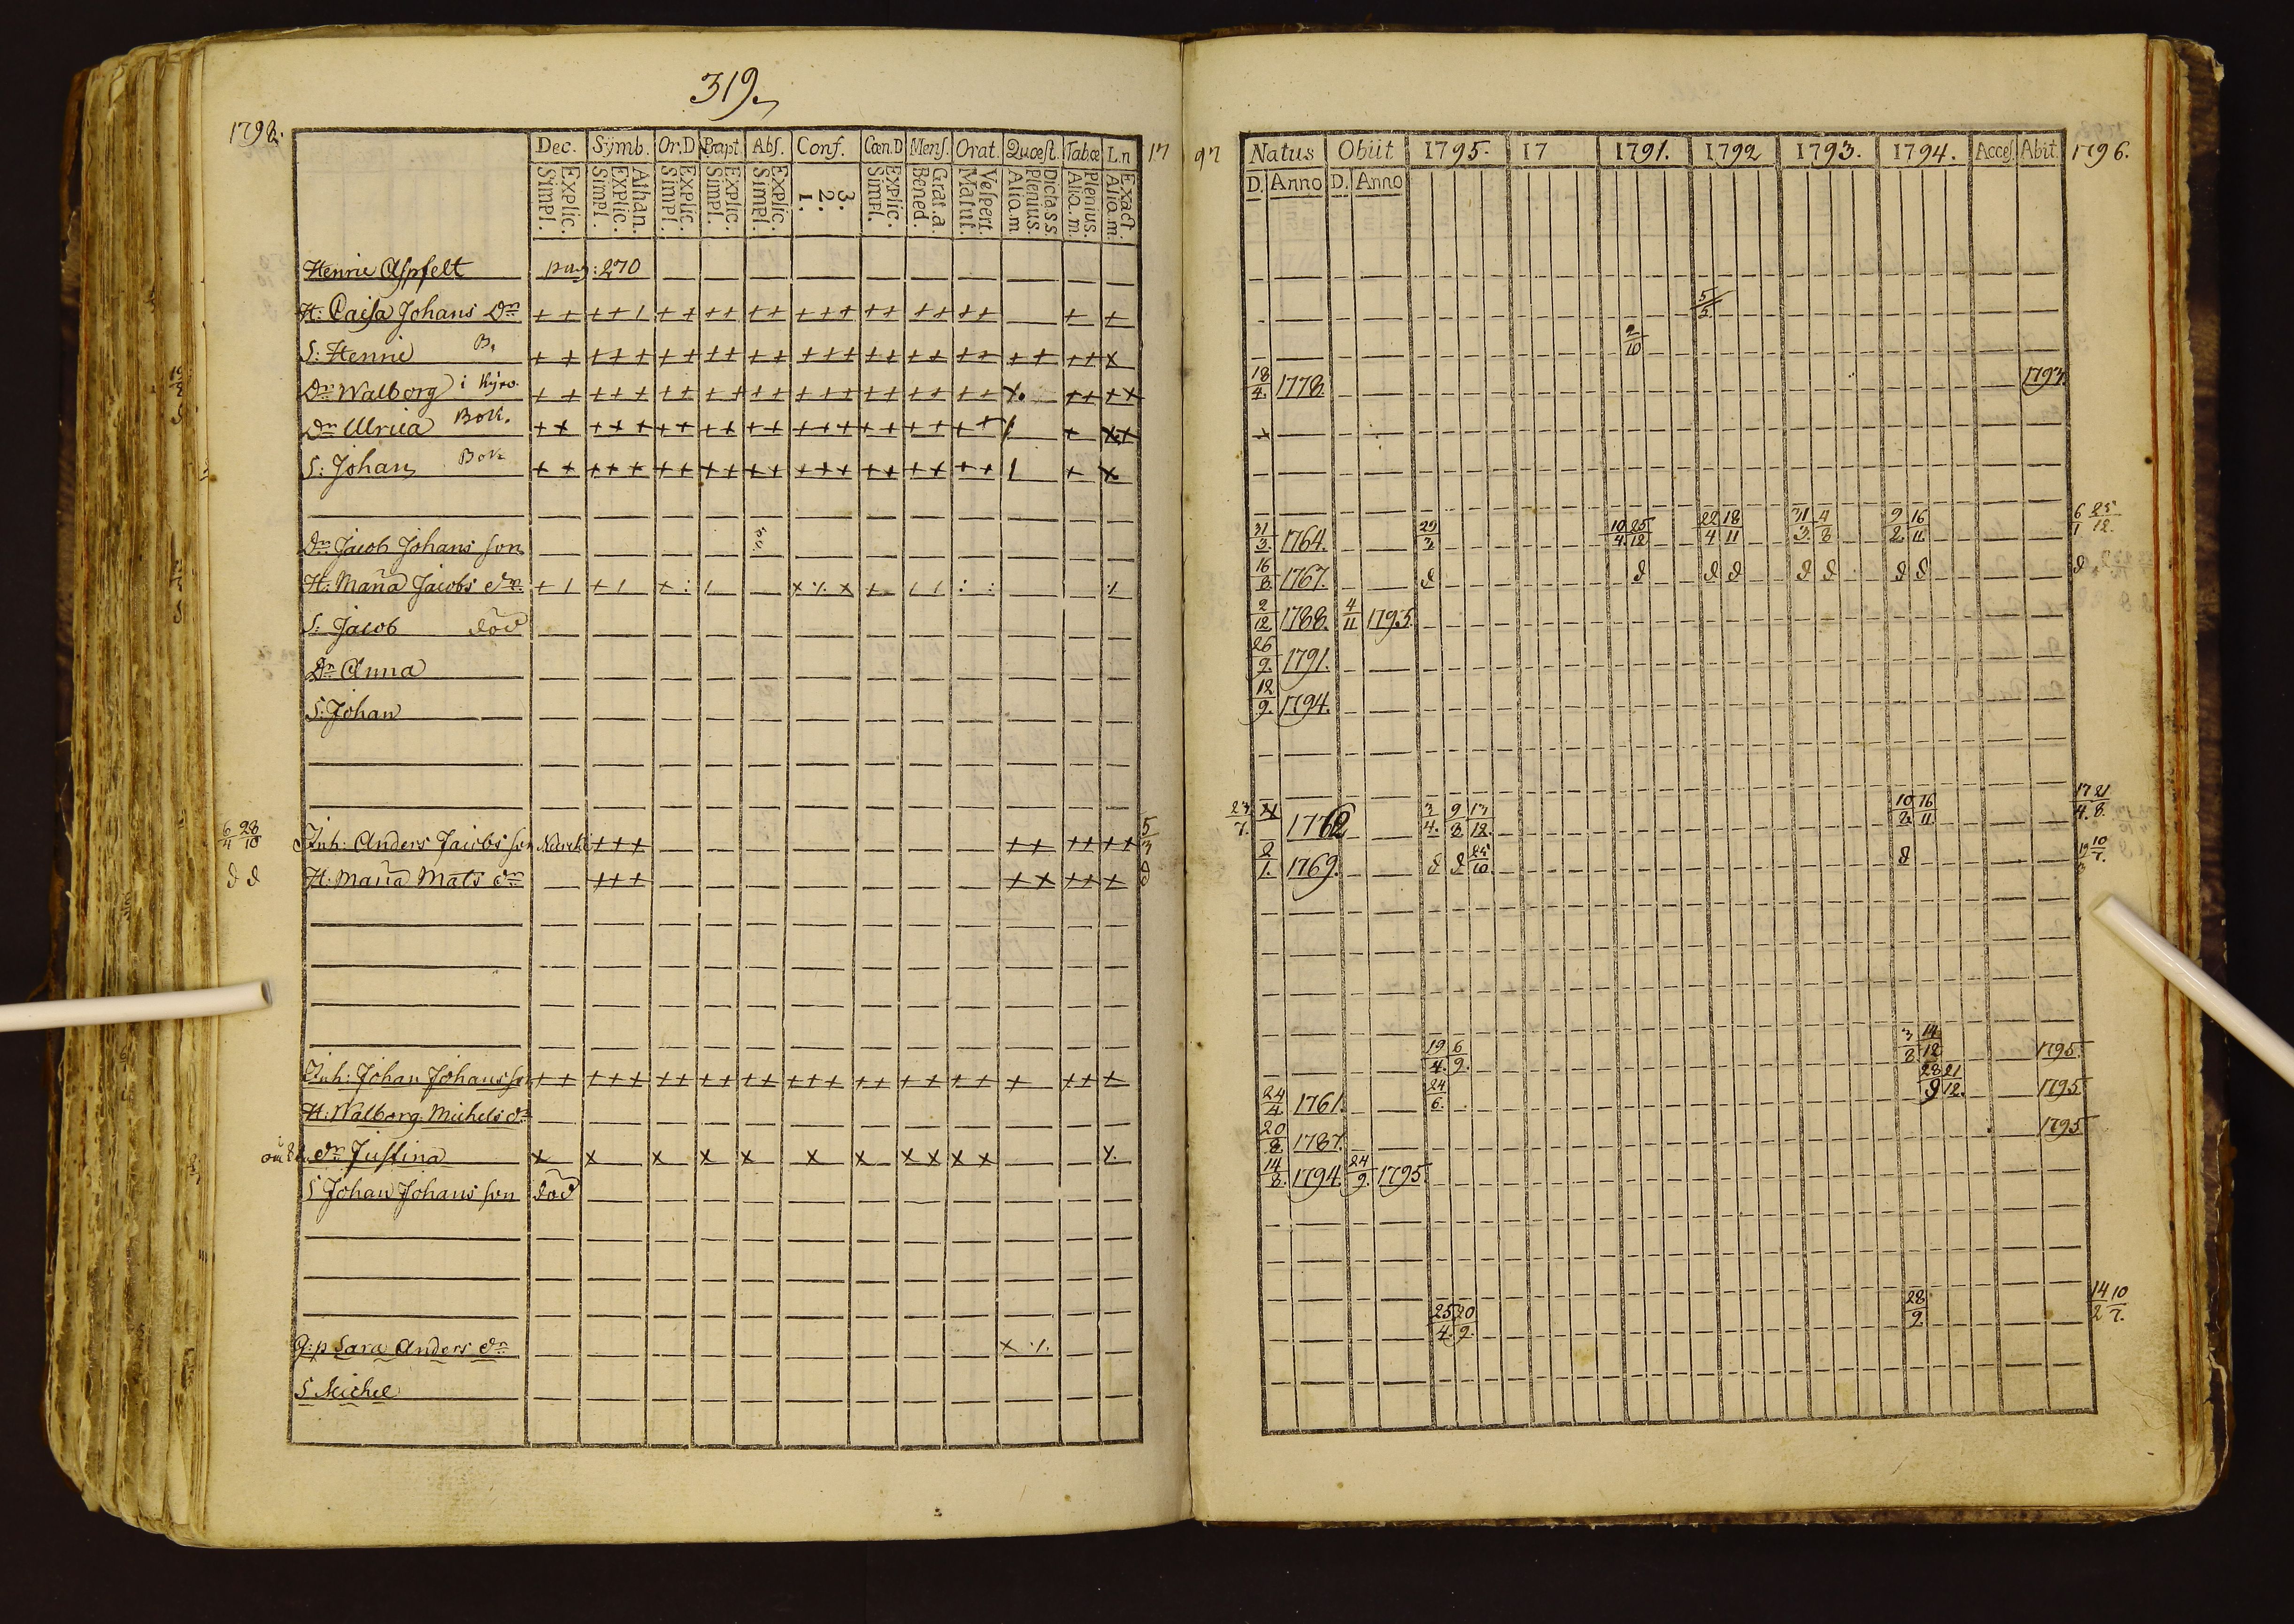 319.
1798.
Dec. Symb. Or.D Bapt. Abs. Conf. Cœn.D Mens. Orat. Quœst. Tab.œ L.n 17
Explic. Simpl. Athan. Explic. Simpl. Explic. Simpl. Explic. Simpl. Explic. Simpl. 3. 2. 1. Explic. Simpl. Grat. a. Bened. Vespert. Matut. Dicta S S Plenius. Alio. m. Plenius. Alio. m. Exact. Alio. m.
Henric Aspfelt pag: 270
H: Caisa Johans Dr ++ ++/ ++ ++ ++ +++ ++ ++ ++ + +
S: Henric B. ++ +++ ++ ++ ++ +++ ++ ++ ++ ++ ++ x
Dr Walborg i Kyro. ++ +++ ++ ++ ++ +++ ++ ++ ++ ++ ++
Dr Ulrica Bok. ++ +++ ++ ++ ++ +++ ++ ++ ++ / + x+
S: Johan Bok ++ +++ ++ ++ ++ +++ ++ ++ ++ / + x
Dr Jacob Johans son
H: Maria Jacobs dr
S: Jacob död
Dr Anna
S: Johan
6/4 28/10 Inh: Anders Jacobs son +++ ++ ++ ++ 5/3
d d H: Maria Mats dr +++ ++ ++ + d
Inh: Johan Johansson ++ +++ ++ ++ ++ +++ ++ ++ ++ + ++ +
H: Walborg Michels dr
dr Justina x x x x x x x x x x x
S Johan Johans son död
Q:p Sara Anders dr
S Michel
97 Natus Obiit 1795. 17 1791. 1792 1793. 1794. Acces. Abit. 1796.
D. Anno D. Anno
5/2
2/10
18/4. 1778. 1793.
31/3. 1764. 29/3 10/4 25/12 22/4 18/11 31/3 4/8 9/2 16/11 6/1 25/12
16/8 1767. d d d d d d d d d
2/12 1788. 4/11 1795.
26/9. 1791.
12/9. 1794.
23/7. 1762 3/4. 9/8 13/12. 10/2 16/11. 17/4. 21/8.
2/1. 1769. d d 25/10. d 13/3 10/7.
19/4. 6/9. 3/2 14/12 1795.
24/4. 1761. 24/6. 28/9 21/12. 1795
20/8. 1787. 1795
14/8. 1794. 24/9. 1795.
25/4. 20/9. 28/9. 14/2 10/7.